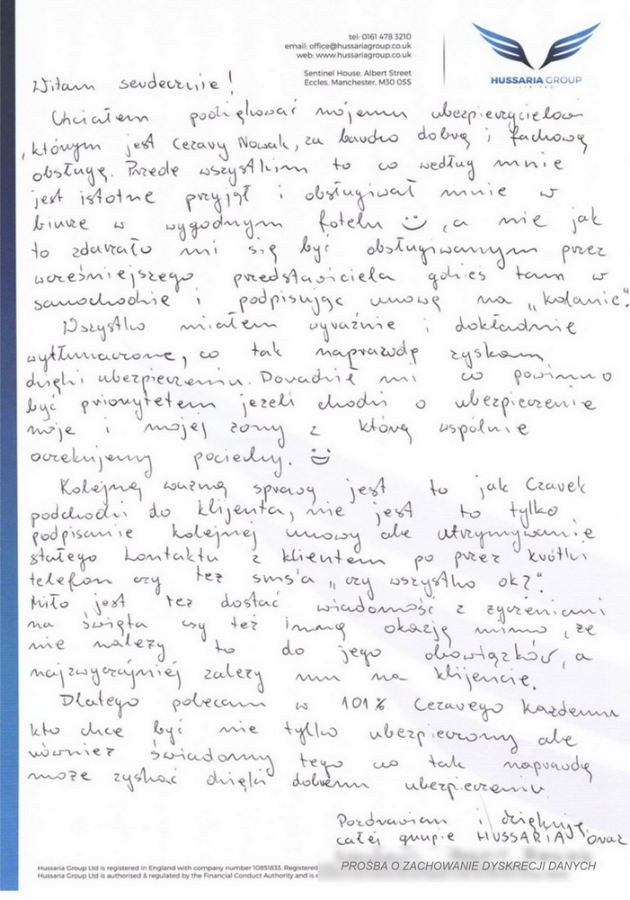 tel: 0161 478 3210
email: office@hussariagroup.co.uk
web: www.hussariagroup.co.uk
Sentinel House, Albert Street
Eccles, Manchester, M30 0SS
HUSSARIA GROUP
LIMITED
Witam serdecznie!
Chciałem podziękować mojemu ubezpieczycielowi
, którym jest Cezary Nowak, za bardzo dobrą i fachową
obsługę. Przede wszystkim to co według mnie
jest istotne przyjął i obsługiwał mnie w
biurze w wygodnym fotelu ☺ , a nie jak
to zdarzało mi się być obsługiwanym przez
wcześniejszego przedstawiciela gdzieś tam w
samochodzie i podpisując umowę na „kolanie".
Wszystko miałem wyraźnie i dokładnie
wytłumaczone, co tak naprawdę zyskam
dzięki ubezpieczeniu. Doradził mi co powinno
być priorytetem jeżeli chodzi o ubezpieczenie
moje i mojej żony z którą wspólnie
oczekujemy pociechy. ☺
Kolejną ważną sprawą jest to jak Czarek
podchodzi do klijenta, nie jest to tylko
podpisanie kolejnej umowy ale utrzymywanie
stałego kontaktu z klientem po przez krótki
telefon czy też sms'a „czy wszystko ok?".
Miło jest też dostać wiadomość z życzeniami
na święta czy też inną okazję mimo, że
nie należy to do jego obowiązków, a
najzwyczajniej zależy mu na klijencie.
Dlatego polecam w 101% Cezarego każdemu
kto chce być nie tylko ubezpieczony ale
również świadomy tego co tak naprawdę
może zyskać dzięki dobremu ubezpieczeniu.
Pozdrawiam i dziękuję
całej grupie HUSSARIA oraz
PROŚBA O ZACHOWANIE DYSKRECJI DANYCH
Hussaria Group Ltd is registered in England with company number 10851833. Registered
Hussaria Group Ltd is authorised & regulated by the Financial Conduct Authority and is